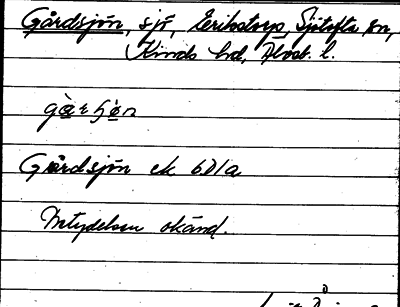 Gårdsjön, sjö, Eriksto​rp, Sjötofta sn,
Kinds hd, Älvsb. l.
Gårdsjön ek 6D1a
Betydelsen okänd.